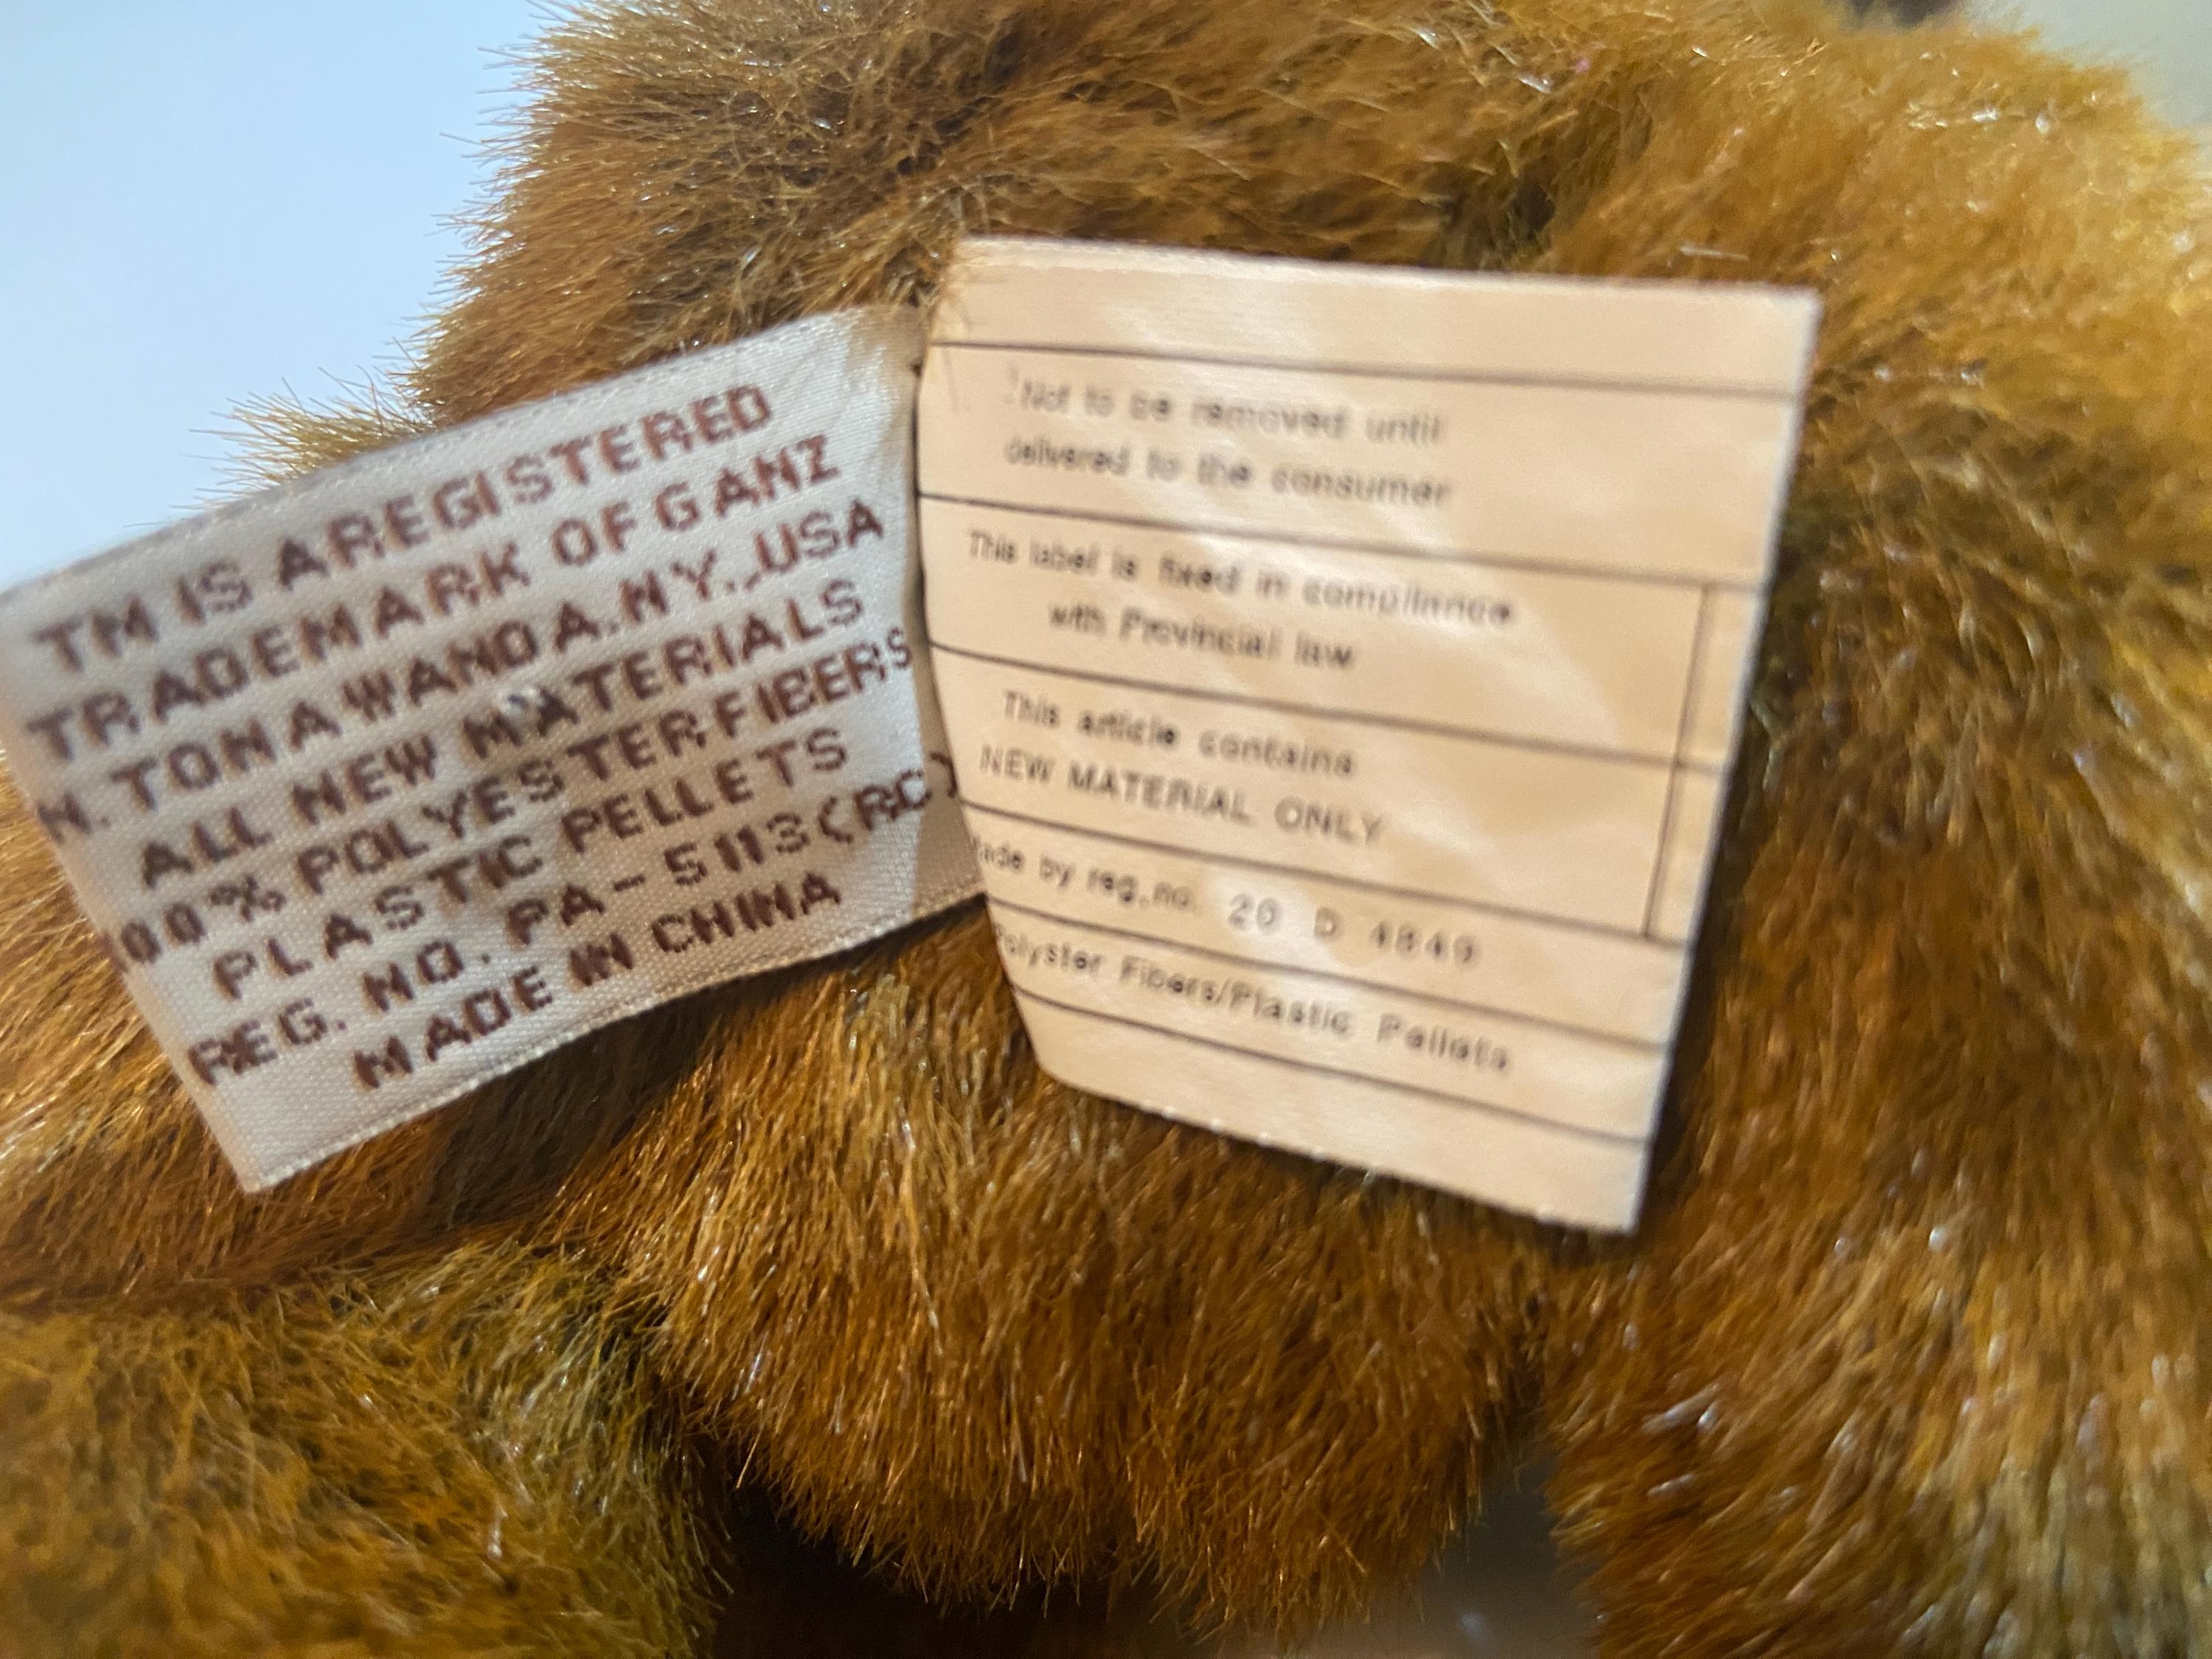 TM IS AREGISTERED
TRADEMARK OF GANZ
N. TONAWANDA. NY., USA
ALL NEW MATERIALS
00% POLYESTER FIBERS
PLASTIC PELLETS
REG. NO. PA-5113(RC)
MADE IN CHINA
Not to be removed until
delivered to the consumer
This label is fixed in compliance
with Provincial law
This article contains
NEW MATERIAL ONLY
Made by reg.no. 20 D 4849
Polyster Fibers/Plastic Pellets